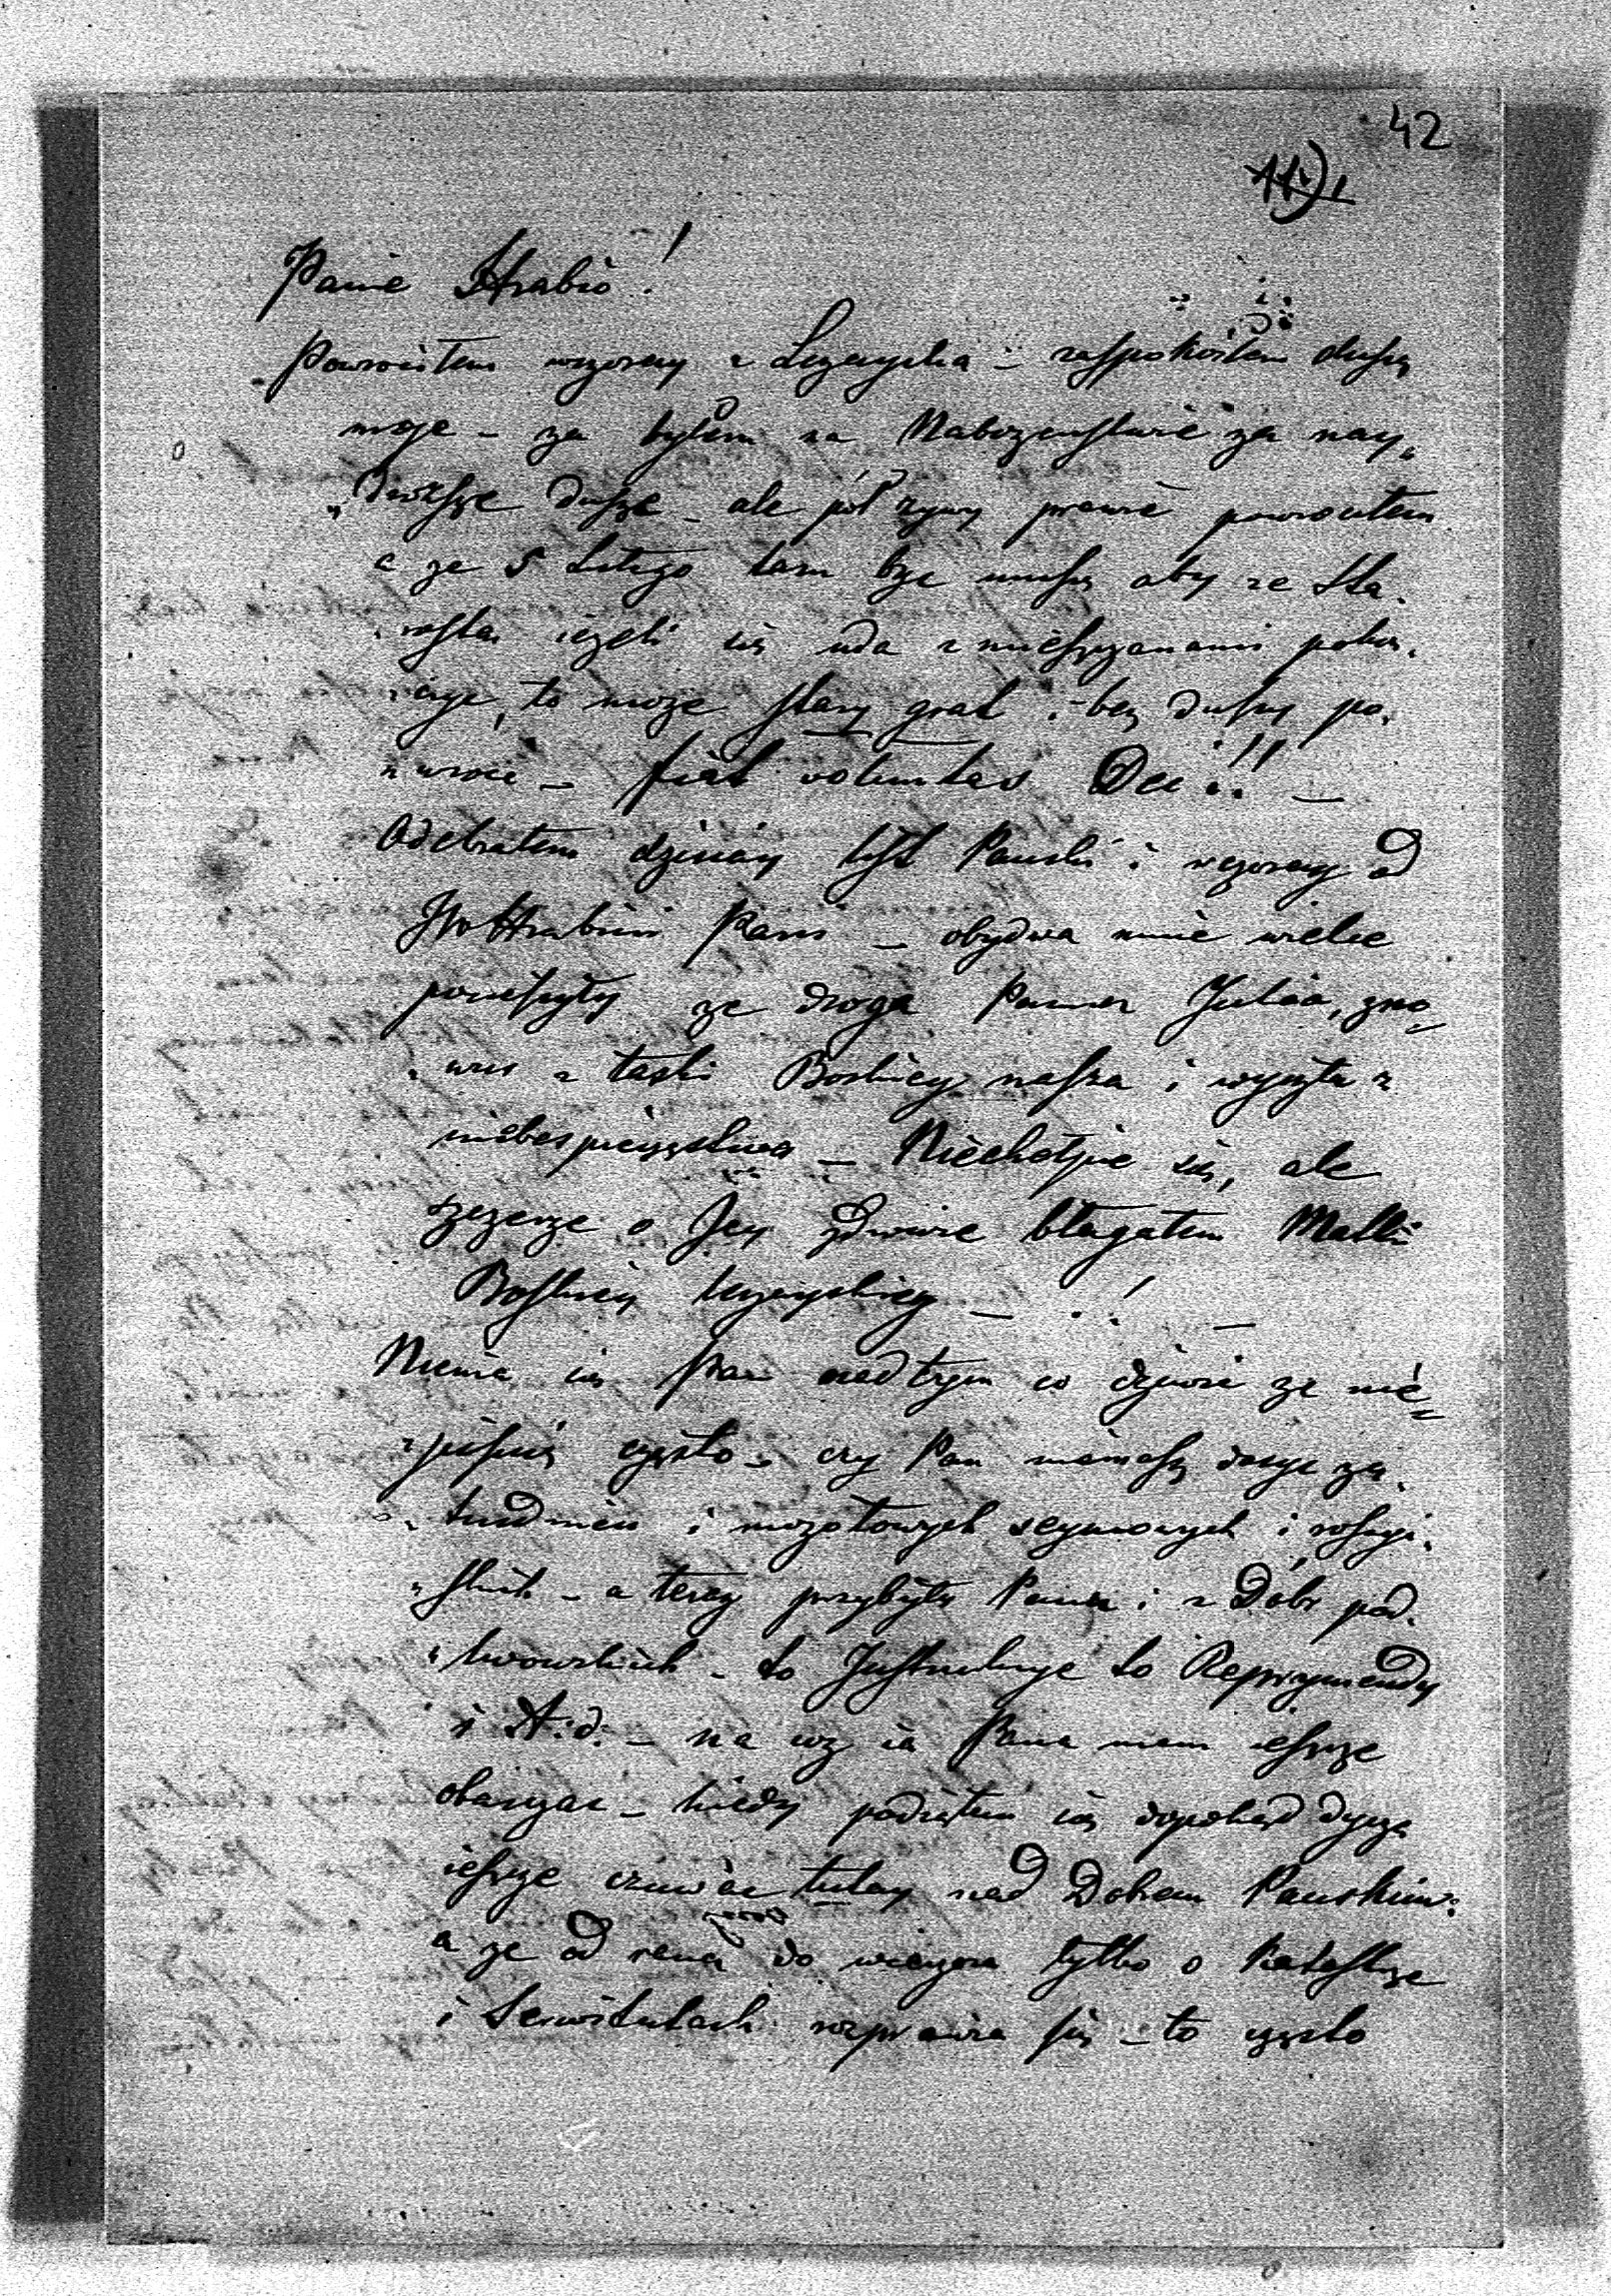 42
Panie Hrabio!
Powrociłem wczoray z Leżayska – zaspokoiłem duszę
moje – że byłem na Nabożenstwie za nay„
„drożsże dusże – ale poł żywy prawie powrociłem
a że 5 Lutego tam być muszę aby ze Sta„
„rostą ieżeli się uda z mieszczanami
to może stary grat i bez duszy po„
„wroci – fiat voluntas Dei!! –
Odebrałem dzisiay list Panski i wczoray od
JW Hrabini Pani – obydwa mnie wielce
pocieszyły że droga Panna Julia, zno„
„wu z łaski Boskiey nasza i wyszła z
niebespieczęstwa – Niechełpie się, ale
szczerze o Jey zdrowie błagałem Matki
Boskiey Leżayskiey – !  –
Niema się Pan nad tym co dziwic że nie„
„piszę często – czy Pan niemasz dosyc za„
„trudnien i mozołowych seymowych i
– a teraz przybyły Panu i z Dobr pod„
„lwowskich – to Jnstrukcye to Reprymendy
i t: d: – na coż ia Pana mam ieszcze
obarczac – kiedy podiąłem się dopokąd dyszę
ieszcze czuwac tutay nad Dobrem Panskim:
a że od rana do wieczora tylko o Katastrze
i Serwitutach rozprawia się – to często